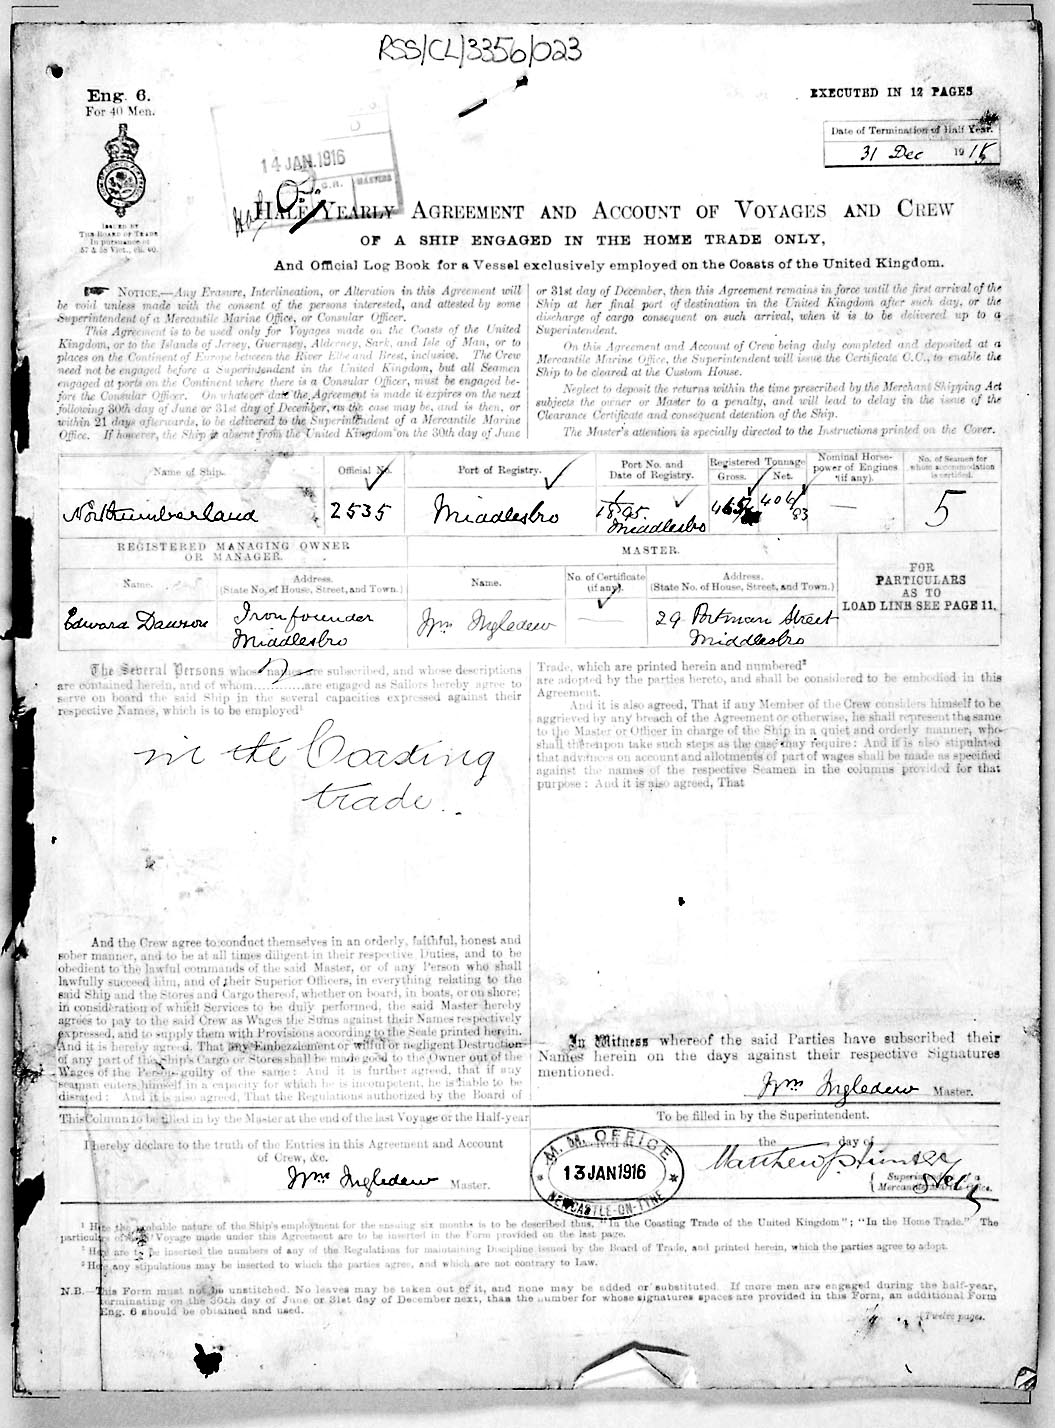 RSS/CL/3356/023
Eng. 6.
For 40 Men.
EXECUTED IN 12 PAGES
Date of Termination of Half Year.
31 Dec 1915
14 JAN. 1916
MASTERS
ISSUED BY
THE BOARD OF TRADE
In pursuance of
57 & 58 Vict., ch. 60.
HALF-YEARLY AGREEMENT AND ACCOUNT OF VOYAGES AND CREW
OF A SHIP ENGAGED IN THE HOME TRADE ONLY,
And Official Log Book for a Vessel exclusively employed on the Coasts of the United Kingdom.
NOTICE.—Any Erasure, Interlineation, or Alteration in this Agreement will
be void unless made with the consent of the persons interested, and attested by some
Superintendent of a Mercantile Marine Office, or Consular Officer.
This Agreement is to be used only for Voyages made on the Coasts of the United
Kingdom, or to the Islands of Jersey, Guernsey, Alderney, Sark, and Isle of Man, or to
places on the Continent of Europe between the River Elbe and Brest, inclusive. The Crew
need not be engaged before a Superintendent in the United Kingdom, but all Seamen
engaged at ports on the Continent where there is a Consular Officer, must be engaged be-
fore the Consular Officer. On whatever date the Agreement is made it expires on the next
following 30th day of June or 31st day of December, as the case may be, and is then, or
within 21 days afterwards, to be delivered to the Superintendent of a Mercantile Marine
Office. If however, the Ship is absent from the United Kingdom on the 30th day of June
or 31st day of December, then this Agreement remains in force until the first arrival of the
Ship at her final port of destination in the United Kingdom after such day, or the
discharge of cargo consequent on such arrival, when it is to be delivered up to a
Superintendent.
On this Agreement and Account of Crew being duly completed and deposited at a
Mercantile Marine Office, the Superintendent will issue the Certificate C.C., to enable the
Ship to be cleared at the Custom House.
Neglect to deposit the returns within the time prescribed by the Merchant Shipping Act
subjects the owner or Master to a penalty, and will lead to delay in the issue of the
Clearance Certificate and consequent detention of the Ship.
The Master's attention is specially directed to the Instructions printed on the Cover.
Name of Ship. Official No. Port of Registry. Port No. and Date of Registry. Registered Tonnage Gross. Net. Nominal Horse-power of Engines (if any). No. of Seamen for whom accommodation is certified.
Northumberland 2535 Middlesbro 1/1895. Middlesbro 404/83 — 5
REGISTERED MANAGING OWNER OR MANAGER. MASTER.
Name. Address. (State No. of House, Street, and Town.) Name. No. of Certificate (if any). Address. (State No. of House, Street, and Town.)
FOR PARTICULARS AS TO LOAD LINE SEE PAGE 11.
Edward Dawson Ironfounder Middlesbro Wm Ingledew — 29 Portman Street Middlesbro
The Several Persons whose names are subscribed, and whose descriptions
are contained herein, and of whom 2 are engaged as Sailors hereby agree to
serve on board the said Ship in the several capacities expressed against their
respective Names, which is to be employed¹
in the Coasting
trade.
And the Crew agree to conduct themselves in an orderly, faithful, honest and
sober manner, and to be at all times diligent in their respective Duties, and to be
obedient to the lawful commands of the said Master, or of any Person who shall
lawfully succeed him, and of their Superior Officers, in everything relating to the
said Ship and the Stores and Cargo thereof, whether on board, in boats, or on shore;
in consideration of which Services to be duly performed, the said Master hereby
agrees to pay to the said Crew as Wages the Sums against their Names respectively
expressed, and to supply them with Provisions according to the Scale printed herein.
And it is hereby agreed, That any Embezzlement or wilful or negligent Destruction
of any part of the Ship's Cargo or Stores shall be made good to the Owner out of the
Wages of the Person guilty of the same: And it is further agreed, that if any
seaman enters himself in a capacity for which he is incompetent, he is liable to be
disrated: And it is also agreed, That the Regulations authorized by the Board of
Trade, which are printed herein and numbered²
are adopted by the parties hereto, and shall be considered to be embodied in this
Agreement.
And it is also agreed, That if any Member of the Crew considers himself to be
aggrieved by any breach of the Agreement or otherwise, he shall represent the same
to the Master or Officer in charge of the Ship in a quiet and orderly manner, who
shall thereupon take such steps as the case may require: And it is also stipulated
that advances on account and allotments of part of wages shall be made as specified
against the names of the respective Seamen in the columns provided for that
purpose: And it is also agreed, That
In Witness whereof the said Parties have subscribed their
Names herein on the days against their respective Signatures
mentioned.
Wm Ingledew Master.
This Column to be filled in by the Master at the end of the last Voyage or the Half-year
I hereby declare to the truth of the Entries in this Agreement and Account
of Crew, &c.
Wm Ingledew Master.
To be filled in by the Superintendent.
the day of
M. M. OFFICE
13 JAN 1916
NEWCASTLE-ON-TYNE
Matthew
¹ Here the probable nature of the Ship's employment for the ensuing six months is to be described thus, "In the Coasting Trade of the United Kingdom"; "In the Home Trade." The
particulars of each Voyage made under this Agreement are to be inserted in the Form provided on the last page.
² Here are to be inserted the numbers of any of the Regulations for maintaining Discipline issued by the Board of Trade, and printed herein, which the parties agree to adopt.
³ Here any stipulations may be inserted to which the parties agree, and which are not contrary to Law.
N.B.—This Form must not be unstitched. No leaves may be taken out of it, and none may be added or substituted. If more men are engaged during the half-year,
terminating on the 30th day of June or 31st day of December next, than the number for whose signatures spaces are provided in this Form, an additional Form
Eng. 6 should be obtained and used.
(Twelve pages.